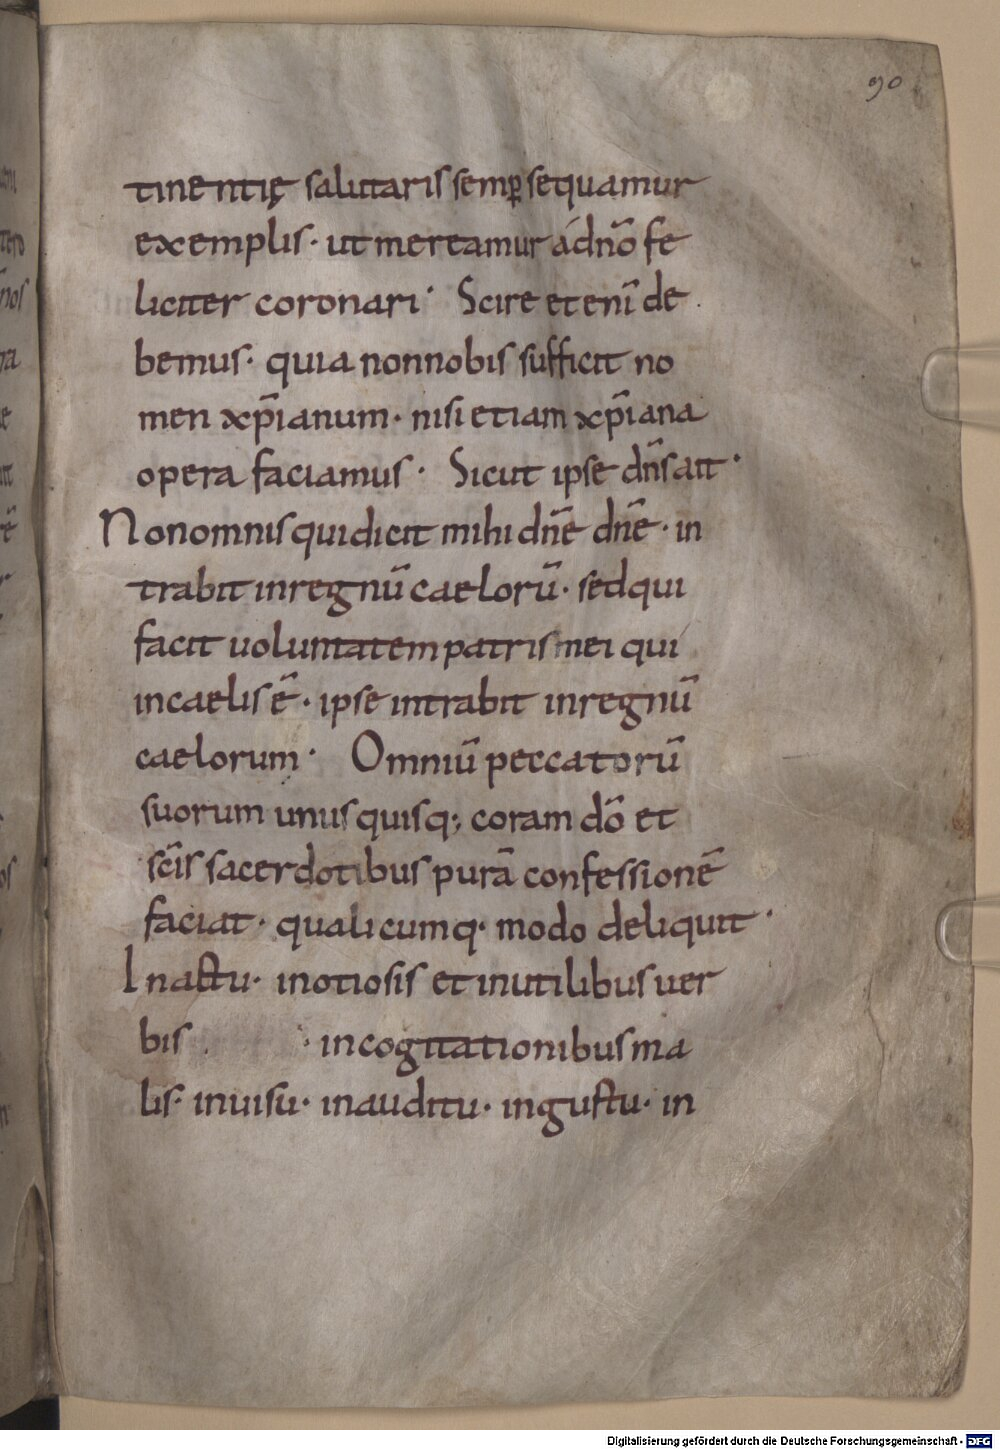 90
tinentię salutaris semꝑ sequamur
exemplis· ut mereamur ádnō fe
liciter coronari· Scire etenī de
bemus· quia nonnobis sufficit no
men xp̄ianum· nisi etiam xp̄iana
opera faciamus· Sicut ipse dn̄s ait·
Nonomnis quidicit mihi dn̄e dn̄e· in
trabit inregnū caelorū· sedqui
facit uoluntatem patris mei qui
incaelis ē· ipse intrabit inregnū
caelorum· Omniū peccatorū
suorum unusquisq; coram dō et
sc̄is sacerdotibus purā confessionē
faciat· qualicumq· modo deliquit·
Inactu· inotiosis et inutilibus uer
bis · incogitationibus ma
lis· inuisu· inauditu· ingustu· in
Digitalisierung gefördert durch die Deutsche Forschungsgemeinschaft - DFG